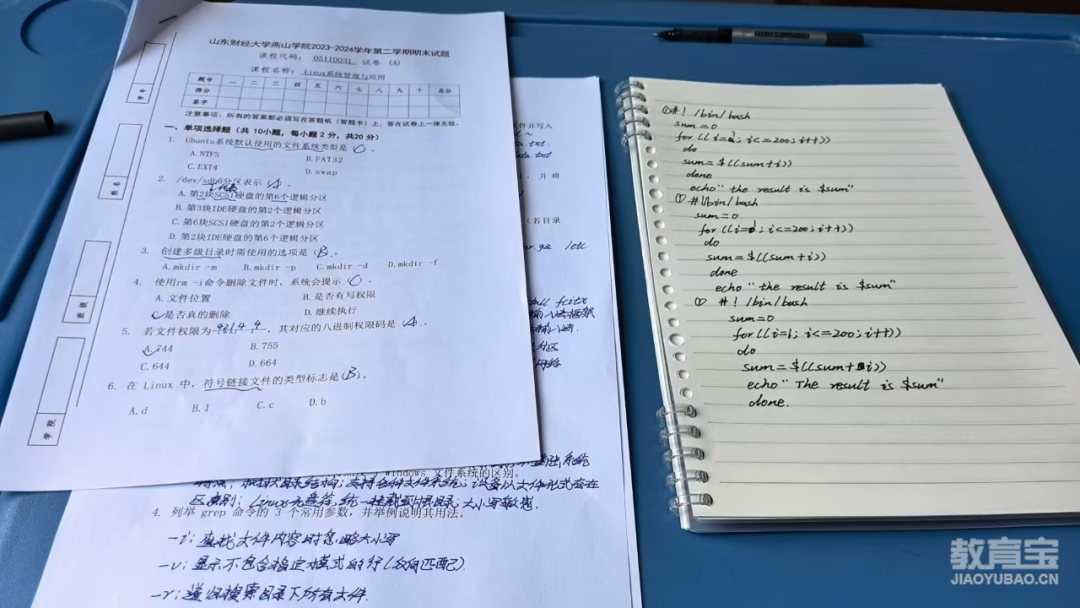 山东财经大学燕山学院2023-2024学年第二学期期末试题
课程代码: 05110031 试卷 (A)
课程名称: Linux系统管理与应用
题号 一 二 三 四 五 六 七 八 九 十 总分
得分
签字
注意事项：所有的答案都必须写在答题纸（答题卡）上，答在试卷上一律无效。
一、单项选择题（共 10小题，每小题 2 分，共20 分）
1. Ubuntu系统默认使用的文件系统类型是（C）。
A.NTFS B.FAT32
C.EXT4 D.swap
2. /dev/sdb6分区表示（A）。
A.第2块SCSI硬盘的第6个逻辑分区
B.第3块IDE硬盘的第2个逻辑分区
C.第6块SCSI硬盘的第2个逻辑分区
D.第2块IDE硬盘的第6个逻辑分区
3. 创建多级目录时需使用的选项是（B）。
A.mkdir -m B.mkdir -p C.mkdir -d D.mkdir -f
4. 使用rm -i命令删除文件时，系统会提示（C）。
A.文件位置 B.是否有写权限
C.是否真的删除 D.继续执行
5. 若文件权限为 ，其对应的八进制权限码是（A）。
A.744 B.755
C.644 D.664
6. 在 Linux 中，符号链接文件的类型标志是（B）。
A.d B.l C.c D.b
件并写入
，并将
(若目录
/etc
fcitx
Windows 文件系统的区别。
4. 列举 grep 命令的 3 个常用参数，并举例说明其用法。
-i：查找文件内容时忽略大小写
-v：显示不包含指定模式的行(反向匹配)
-r：递归搜索目录下所有文件.
①#! /bin/bash
sum=0
for((i=1; i<=200; i++))
do
sum=$((sum+i))
done
echo "the result is $sum"
① #!/bin/bash
sum=0
for ((i=1; i<=200; i++))
do
sum=$((sum+i))
done
echo "the result is $sum"
① #! /bin/bash
sum=0
for((i=1; i<=200; i++))
do
sum=$((sum+i))
echo "The result is $sum"
done.
教育宝
JIAOYUBAO.CN